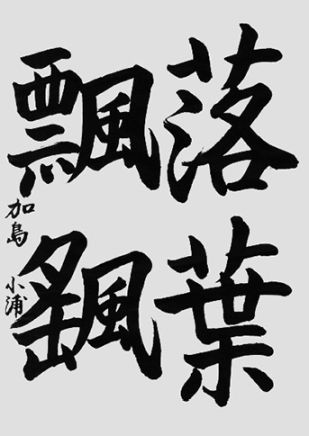 落葉
飄颻
加島 小浦